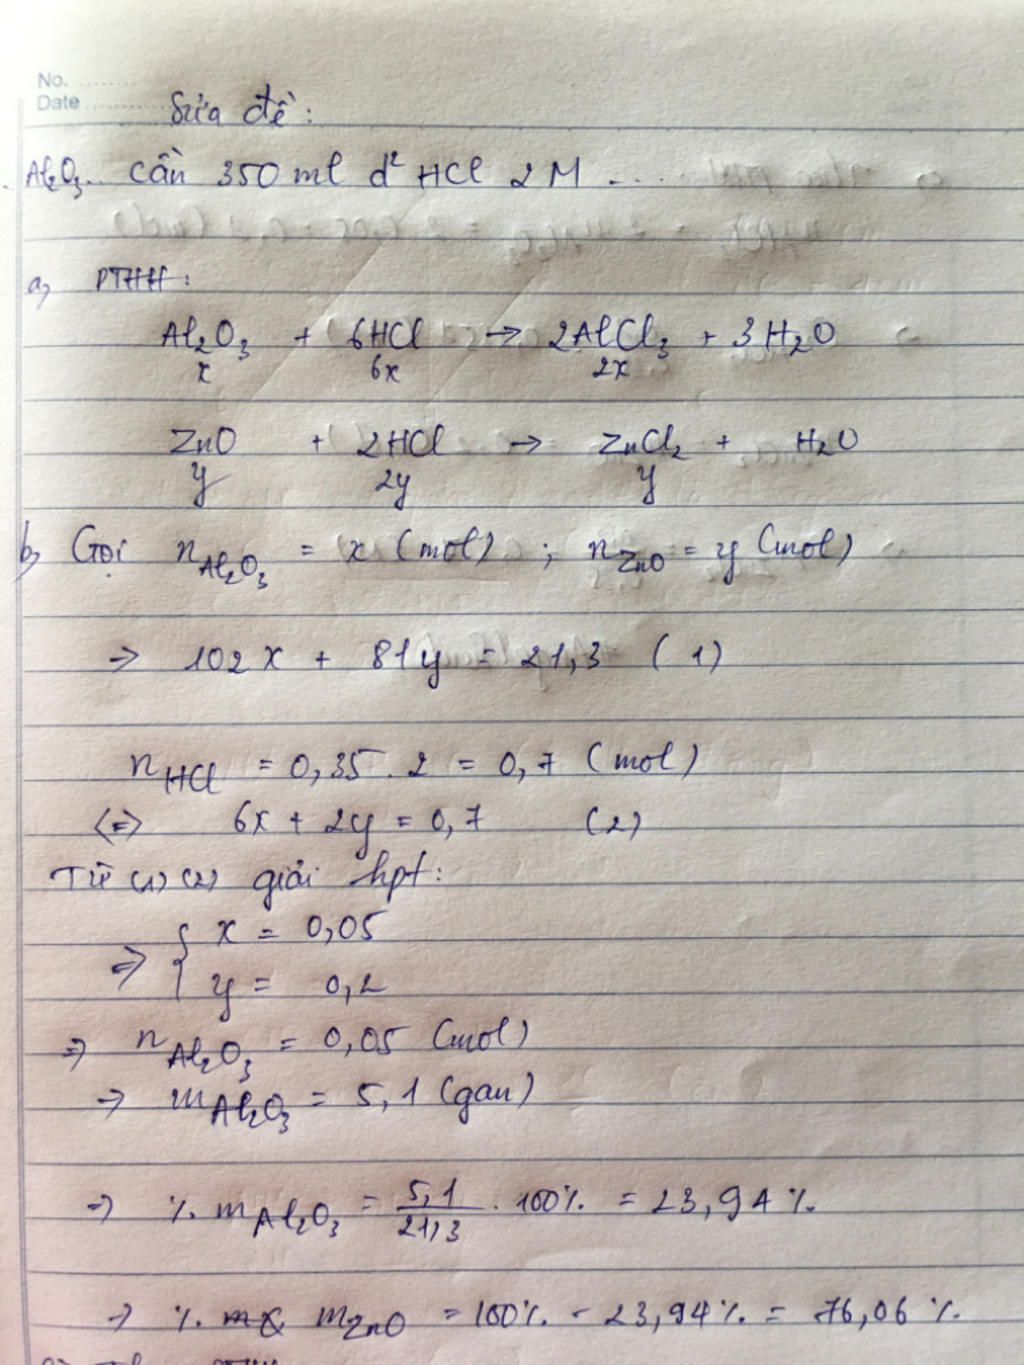 No. ........
Date ........ Sửa đề:
Al₂O₃.. cần 350 ml d² HCl 2 M ....
a, PTHH:
Al₂O₃ + 6HCl → 2AlCl₃ + 3H₂O
x 6x 2x
ZnO + 2HCl → ZnCl₂ + H₂O
y 2y y
b, Gọi n Al₂O₃ = x (mol) ; n ZnO = y (mol)
→ 102x + 81y = 21,3 (1)
n HCl = 0,35 . 2 = 0,7 (mol)
(=) 6x + 2y = 0,7 (2)
Từ (1) (2) giải hpt:
=> { x = 0,05
y = 0,2
=> n Al₂O₃ = 0,05 (mol)
→ m Al₂O₃ = 5,1 (gam)
→ % m Al₂O₃ = 5,1/21,3 . 100% = 23,94 %
→ % m ZnO = 100% - 23,94% = 76,06 %